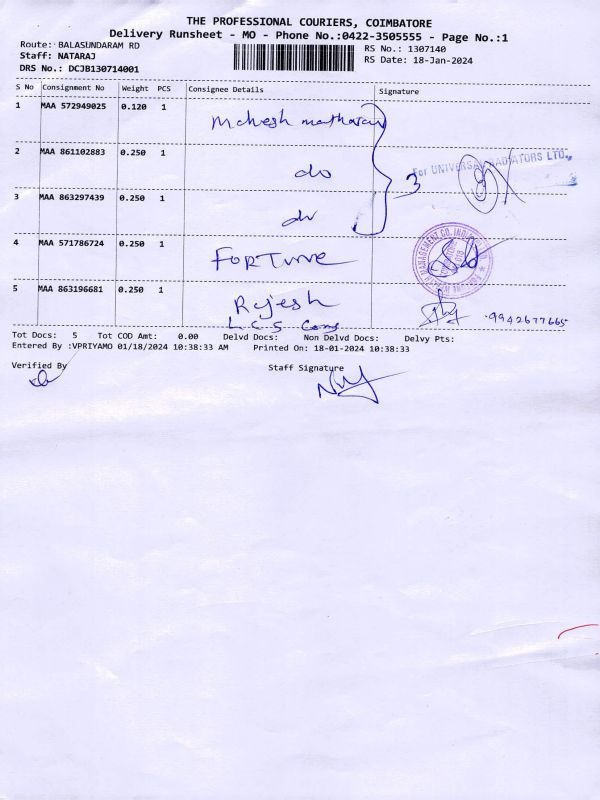 THE PROFESSIONAL COURIERS, COIMBATORE
Delivery Runsheet - MO - Phone No.:0422-3505555 - Page No.:1
Route: BALASUNDARAM RD
RS No.: 1307140
Staff: NATARAJ
RS Date: 18-Jan-2024
DRS No.: DCJB130714001
S No Consignment No Weight PCS Consignee Details Signature
1 MAA 572949025 0.120 1
Mahesh
2 MAA 861102883 0.250 1
do
for UNIVERSAL RADIATORS LTD.,
3
3 MAA 863297439 0.250 1
do
4 MAA 571786724 0.250 1
FORTUNE
MANAGEMENT CO.
5 MAA 863196681 0.250 1
Rajesh
L.C.S
9942677665
Tot Docs: 5 Tot COD Amt: 0.00 Delvd Docs: Non Delvd Docs: Delvy Pts:
Entered By :VPRIYAMO 01/18/2024 10:38:33 AM Printed On: 18-01-2024 10:38:33
Verified By Staff Signature